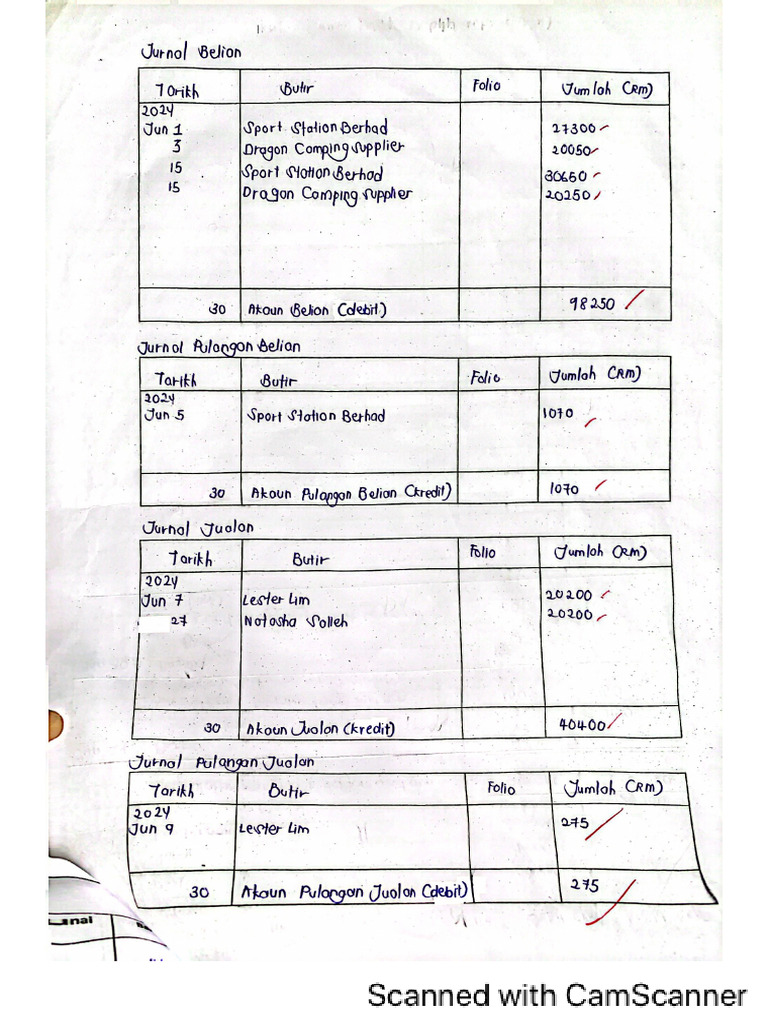 Jurnal Belian
Tarikh Butir Folio Jumlah (RM)
2024
Jun 1 Sport Station Berhad 27300
3 Dragon Camping Supplier 20050
15 Sport Station Berhad 30650
15 Dragon Camping Supplier 20250
30 Akaun Belian (debit) 98250
Jurnal Pulangan Belian
Tarikh Butir Folio Jumlah (RM)
2024
Jun 5 Sport Station Berhad 1070
30 Akaun Pulangan Belian (kredit) 1070
Jurnal Jualan
Tarikh Butir Folio Jumlah (RM)
2024
Jun 7 Lester Lim 20200
27 Natasha Solleh 20200
30 Akaun Jualan (kredit) 40400
Jurnal Pulangan Jualan
Tarikh Butir Folio Jumlah (RM)
2024
Jun 9 Lester Lim 275
30 Akaun Pulangan Jualan (debit) 275
Scanned with CamScanner